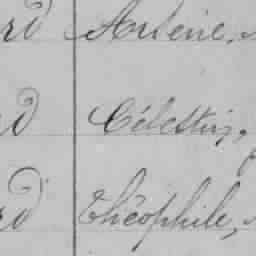 rd Arsène,
rd Célestin,
rd Théophile,